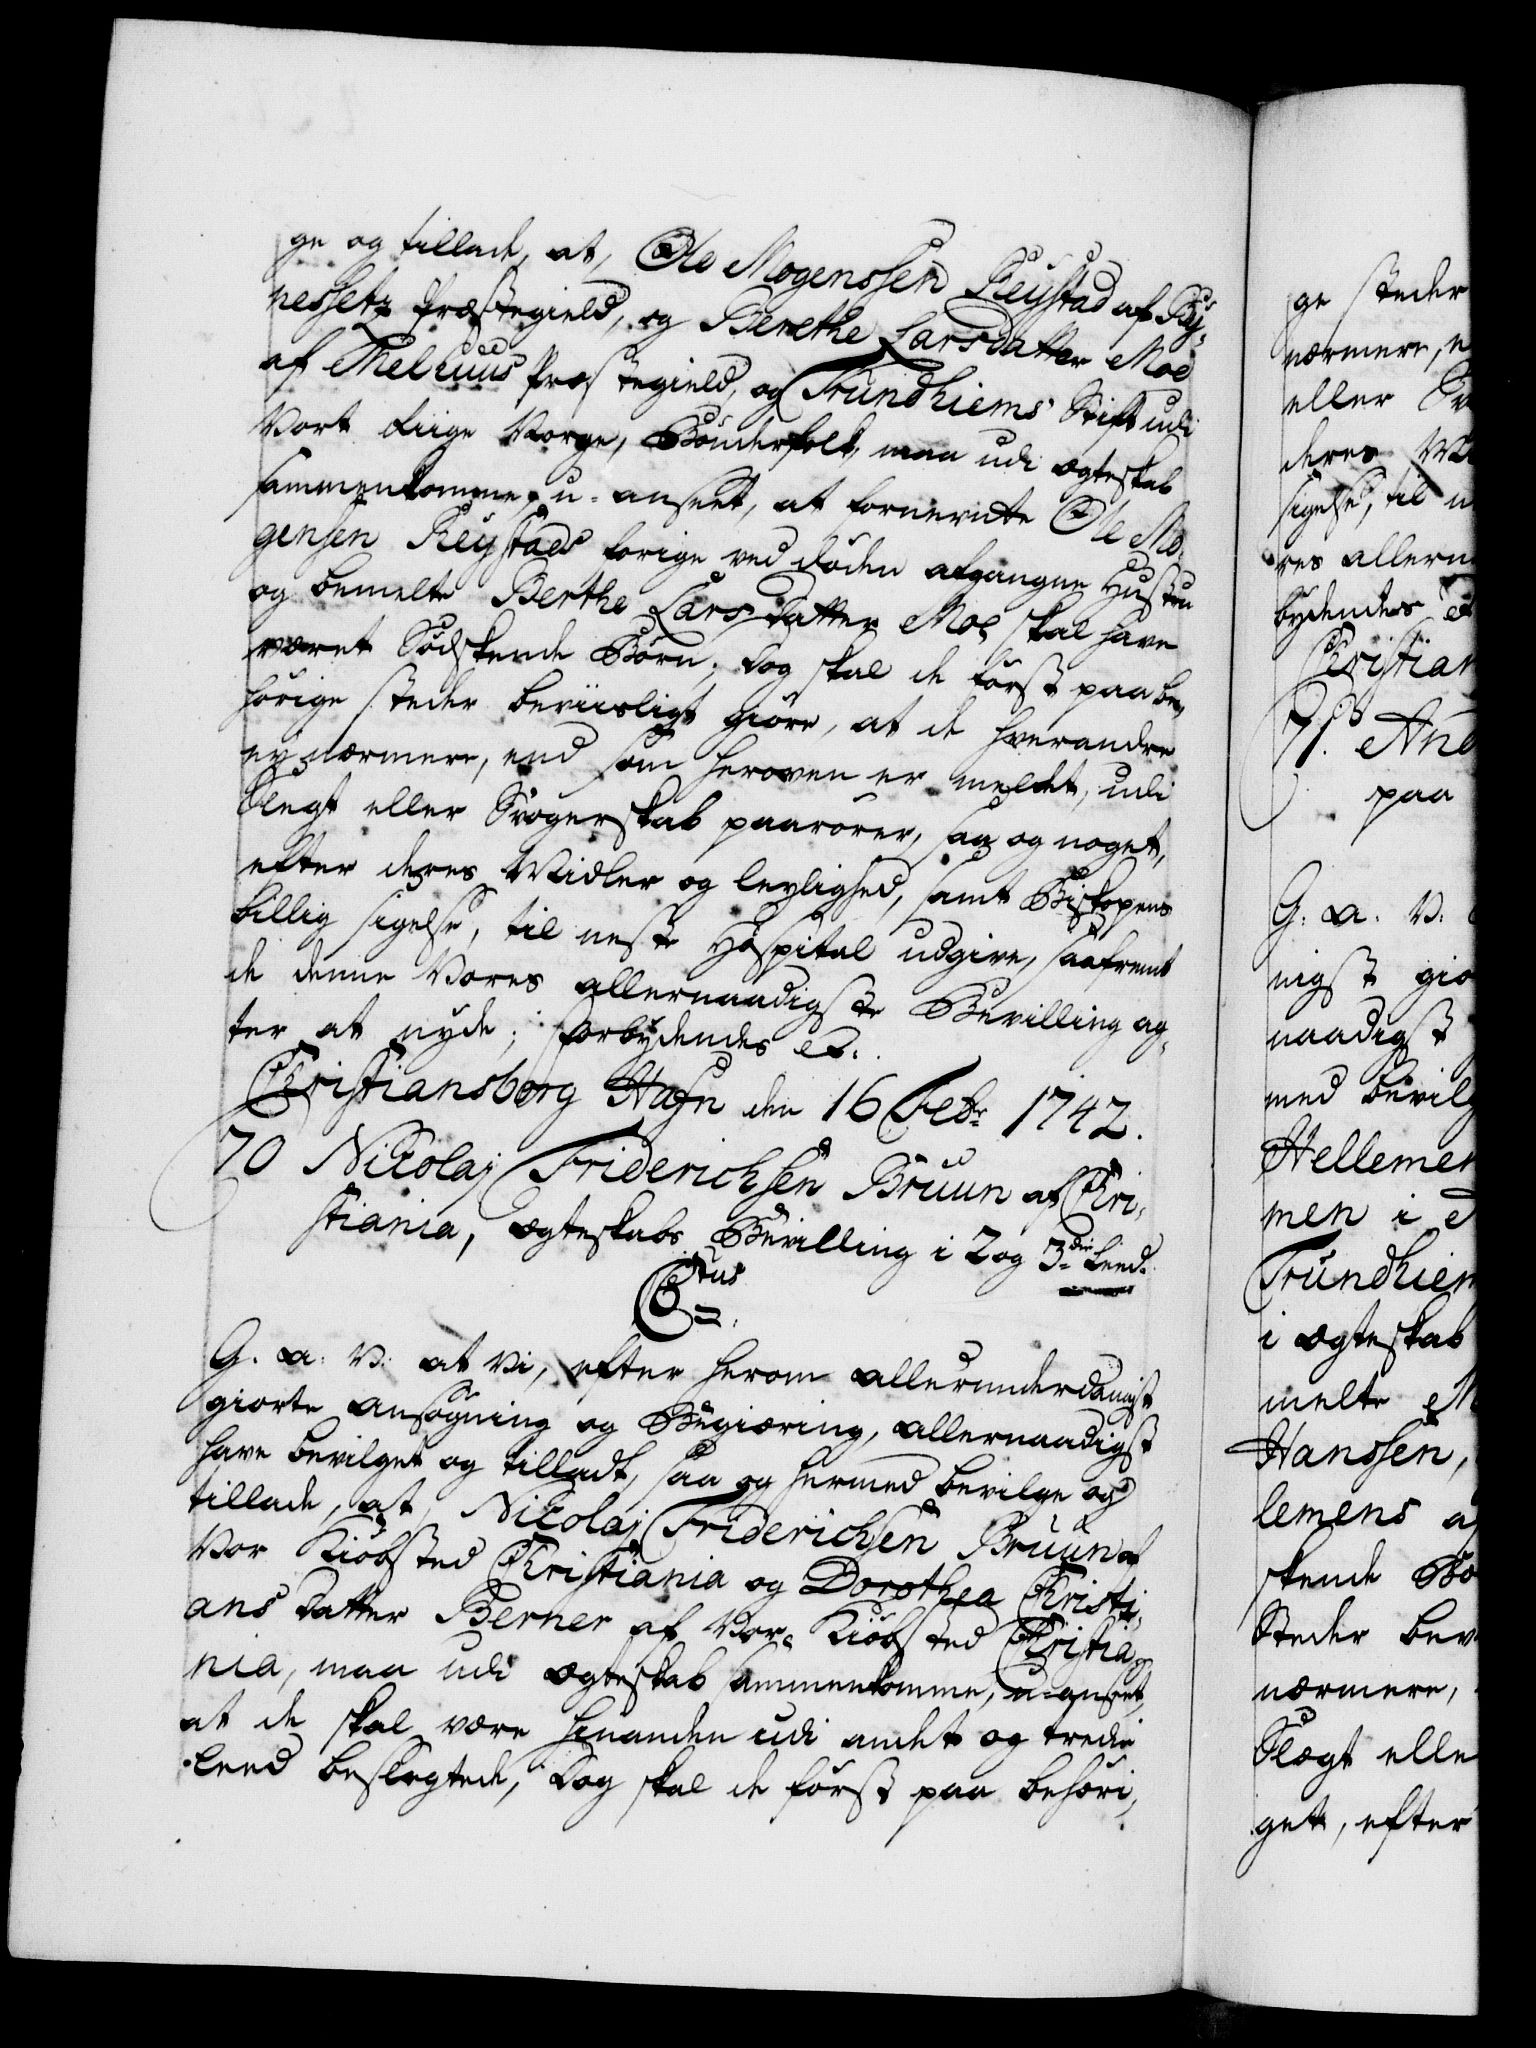 ge og tillade, at, Ole Mogenssen Reystad af Ry-
nessets Præstegield, og Berethe Larsdatter Moe
af Melhuus Præstegield, og Trundhiems Stift udi
Vort Riige Norge, Bønderfolk, maa udi ægteskab
sammenkomme; u-anseet, at fornevnte Ole Mo-
gensen Reystads forige ved døden afgangne Hustru
og bemelte Berthe Larsdatter Moe skal have
været Sødskende Børn; dog skal de først paa be-
hørige steder beviisligt giøre, at de hverandre
ey nærmere, end som heroven er meldt, udi
Slegt eller Svogerskab paarører, saa og noget,
efter deres Midler og leylighed, samt Biskopens
billig sigelse, til neste Hospital udgive, saafremt
de denne Vores allernaadigste Bevilling ag-
ter at nyde; forbydendes etc.
Christiansborg Hafn den 16 Febr 1742.
70 Nicolaj Friderichsen Bruun af Chri-
stiania, ægteskabs Bevilling i 2 og 3die Leed.
Ctus
G. a. v. at Vi, efter herom allerunderdanigst
giorte ansøgning og Begiæring, allernaadigst
have bevilget og tilladt, saa og hermed bevilge og
tillade, at, Nicolaj Friderichsen Bruun af
Vor Kiøbsted Christiania og Dorothea Christi-
ans datter Berner af Vor Kiøbsted Christia-
nia, maa udi ægteskab sammenkomme, u-anseet,
at de skal være hinanden udi andet og tredie
Leed beslegtede, Dog skal de først paa behøri-
ge steder
nærmere, e
eller Sv
deres Mi
sigelse, til n
res allern
bydendes et
Christian
71. And
paa
G. a. v.
nigst gio
naadigst
med bevilg
Hellemen
men i
Trundhiem
i ægteskab
melte M
Hanssen,
lemens af
skende Bø
Steder bev
nærmere,
Slægt elle
get, efter